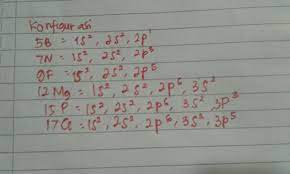 Konfigurasi
5B = 1S², 2S², 2p¹
7N = 1S², 2S², 2p³
9F = 1S², 2S², 2p⁵
12Mg = 1S², 2S², 2p⁶, 3S²
15P = 1S², 2S², 2p⁶, 3S², 3p³
17Cl = 1S², 2S², 2p⁶, 3S², 3p⁵